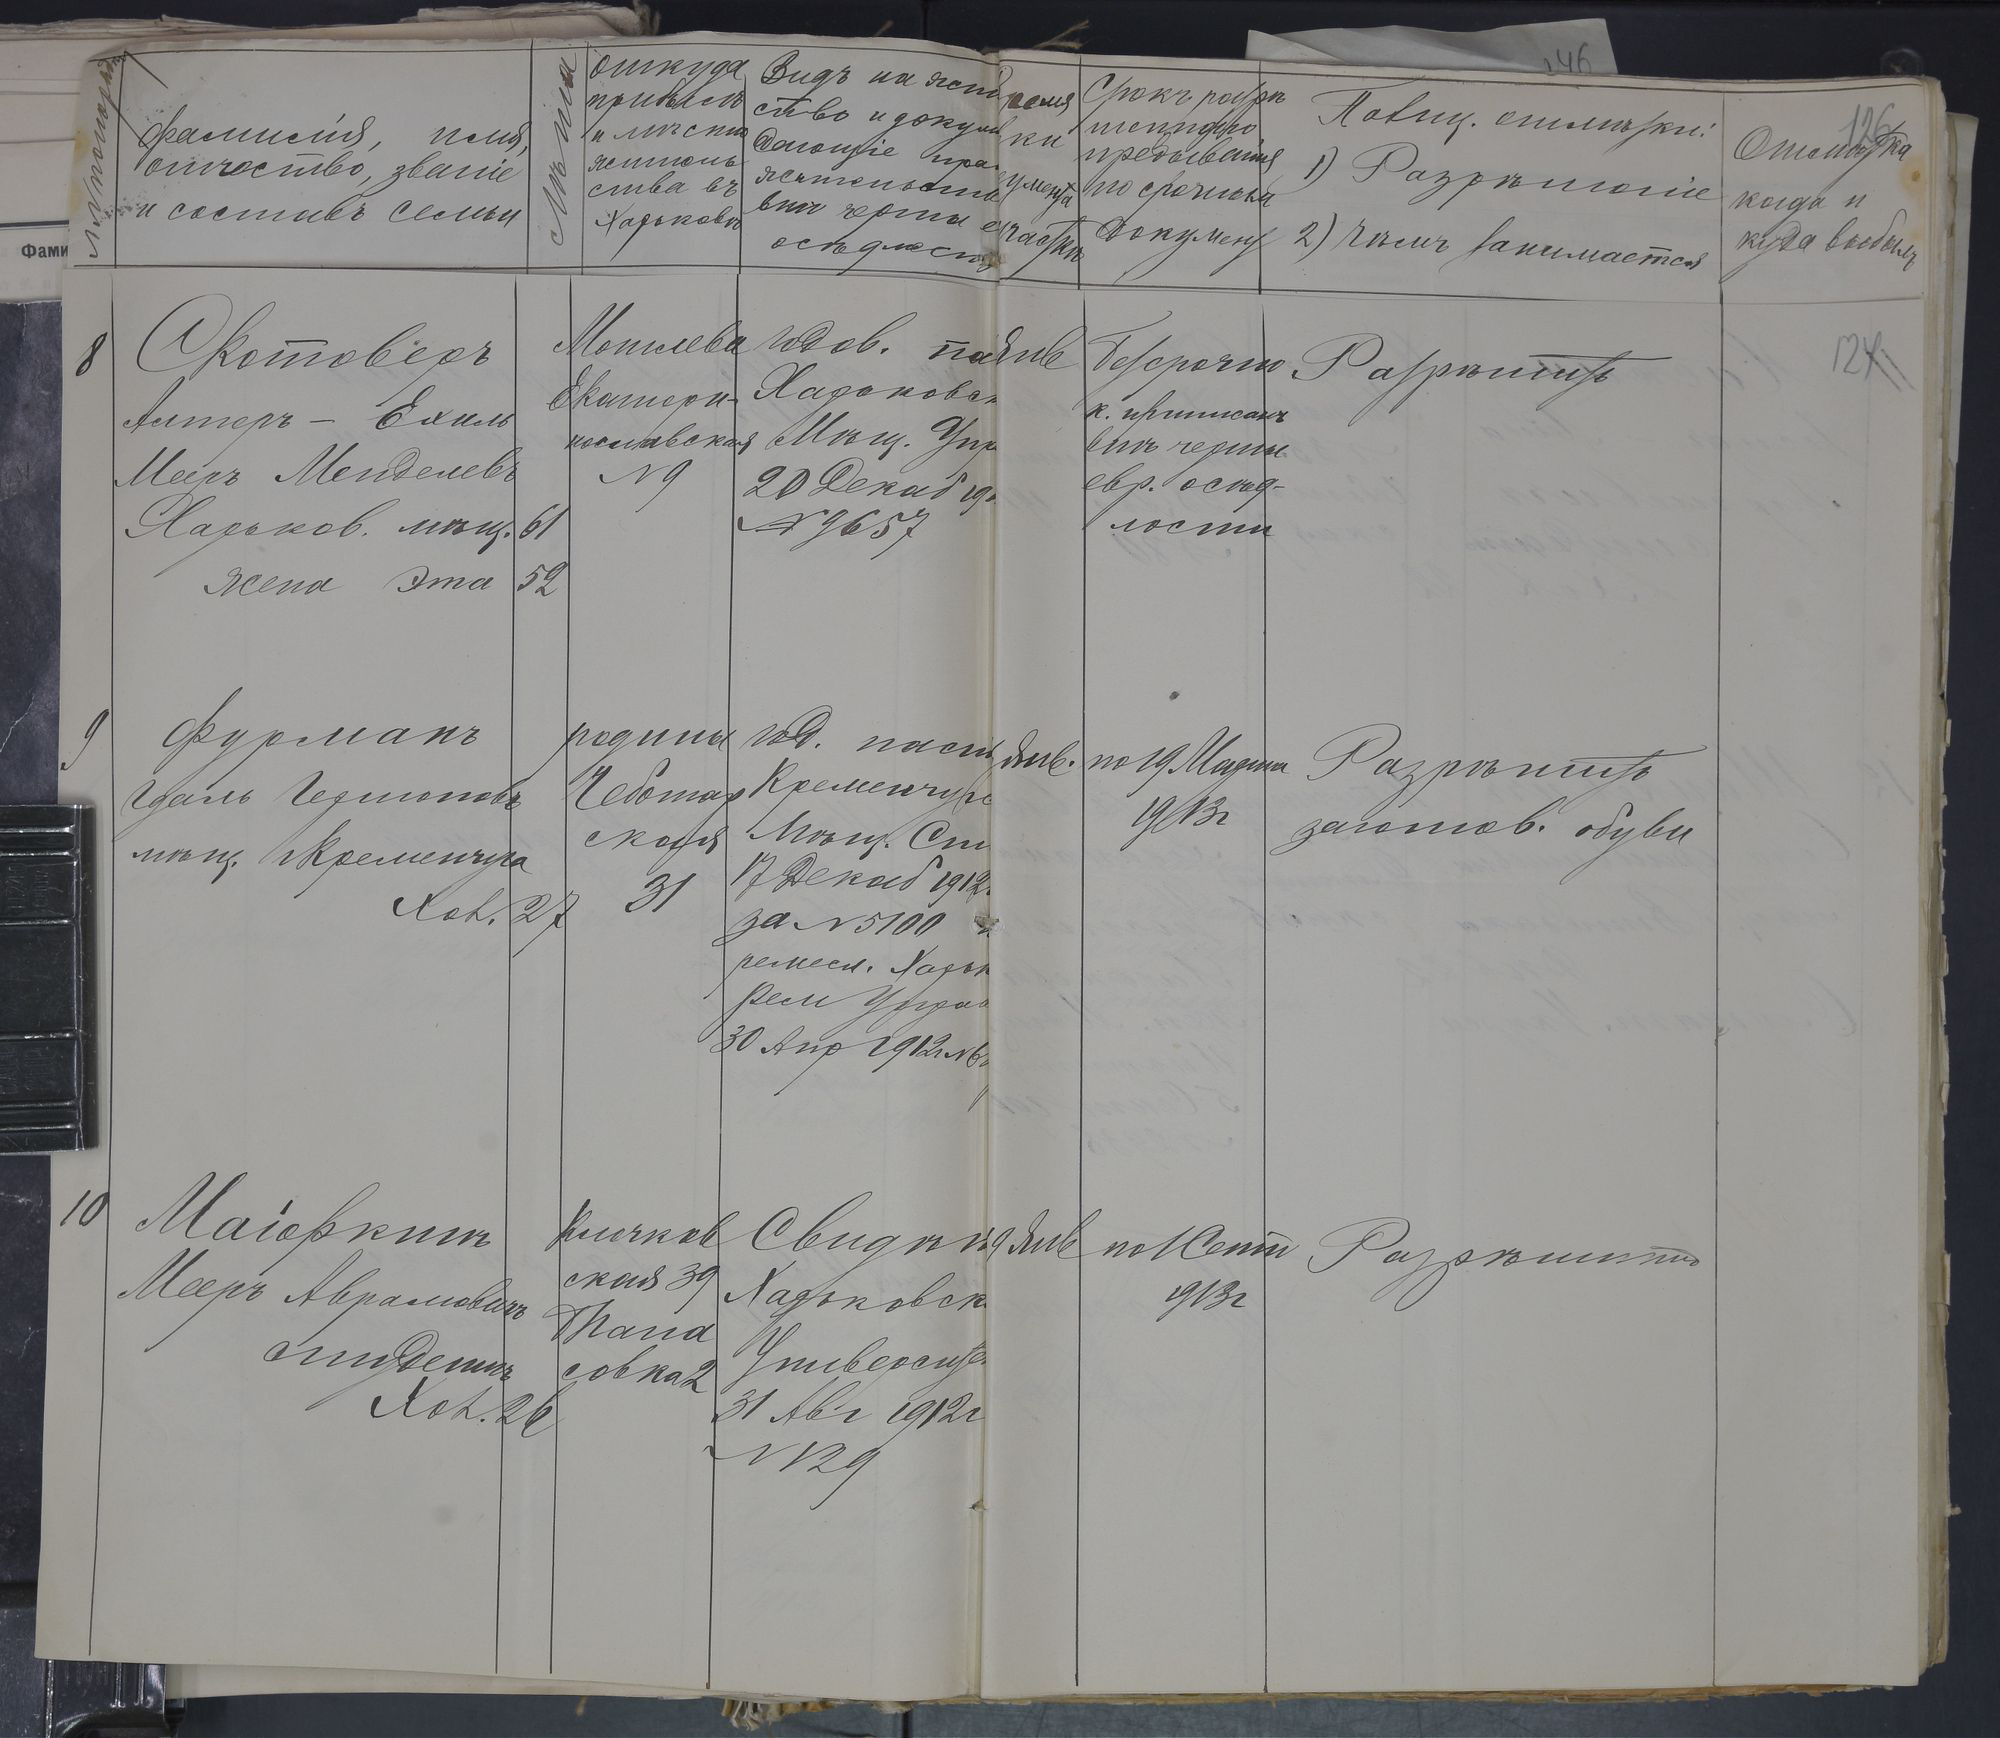 Фамилія, имя,
отчество, званіе
и составъ семьи
Лѣта
Откуда
прибылъ
и мѣсто
житель-
ства въ
Харьковѣ
Видъ на жит
ство и докум
дающіе пра
жительства
внѣ черты е
осѣдлост
ки
умента
участкѣ
Срокъ разрѣ
шеннаго
пребыванія
по срочнымъ
докумен
Полиц. отмѣтки:
1) Разрѣшеніе
2) Чѣмъ занимается
Отмѣтка
когда и
куда выбылъ
126
Фами
8
Скотоверъ
Алтеръ - Ехиль
Мееръ Менделевъ
Харьков. мѣщ. 61
жена Эта 52
Могилева
Екатери-
нославская
№ 9
годов. па
Харьковск
Мѣщ. Упр
20 Декаб 19
№ 9657
Янв
Безсрочно
к. приписанъ
внѣ черты
евр. осѣд-
лости
Разрѣшить
9
Фурманъ
мѣщ. г Кременчуга
Хол. 27
родины
Чеботар
ская
31
год. пасп
Кременчугс
Мѣщ. Ст
17 Декаб 1912
за № 5100 и
ремесл. Харьк
Рем Управ
30 Апр 1912г №
Янв.
по 19 Марта
1913г
Разрѣшить
заготов. обуви
10
Маіоркинъ
Мееръ Аврамовичъ
студентъ
Хол. 26
Клочков
ская 39
Пана
совка 2
Свидѣт
Харьковск.
Университ
31 Авг 1912г
№ 129
9 Янв
по 1 Сент
1913г
Разрѣшить